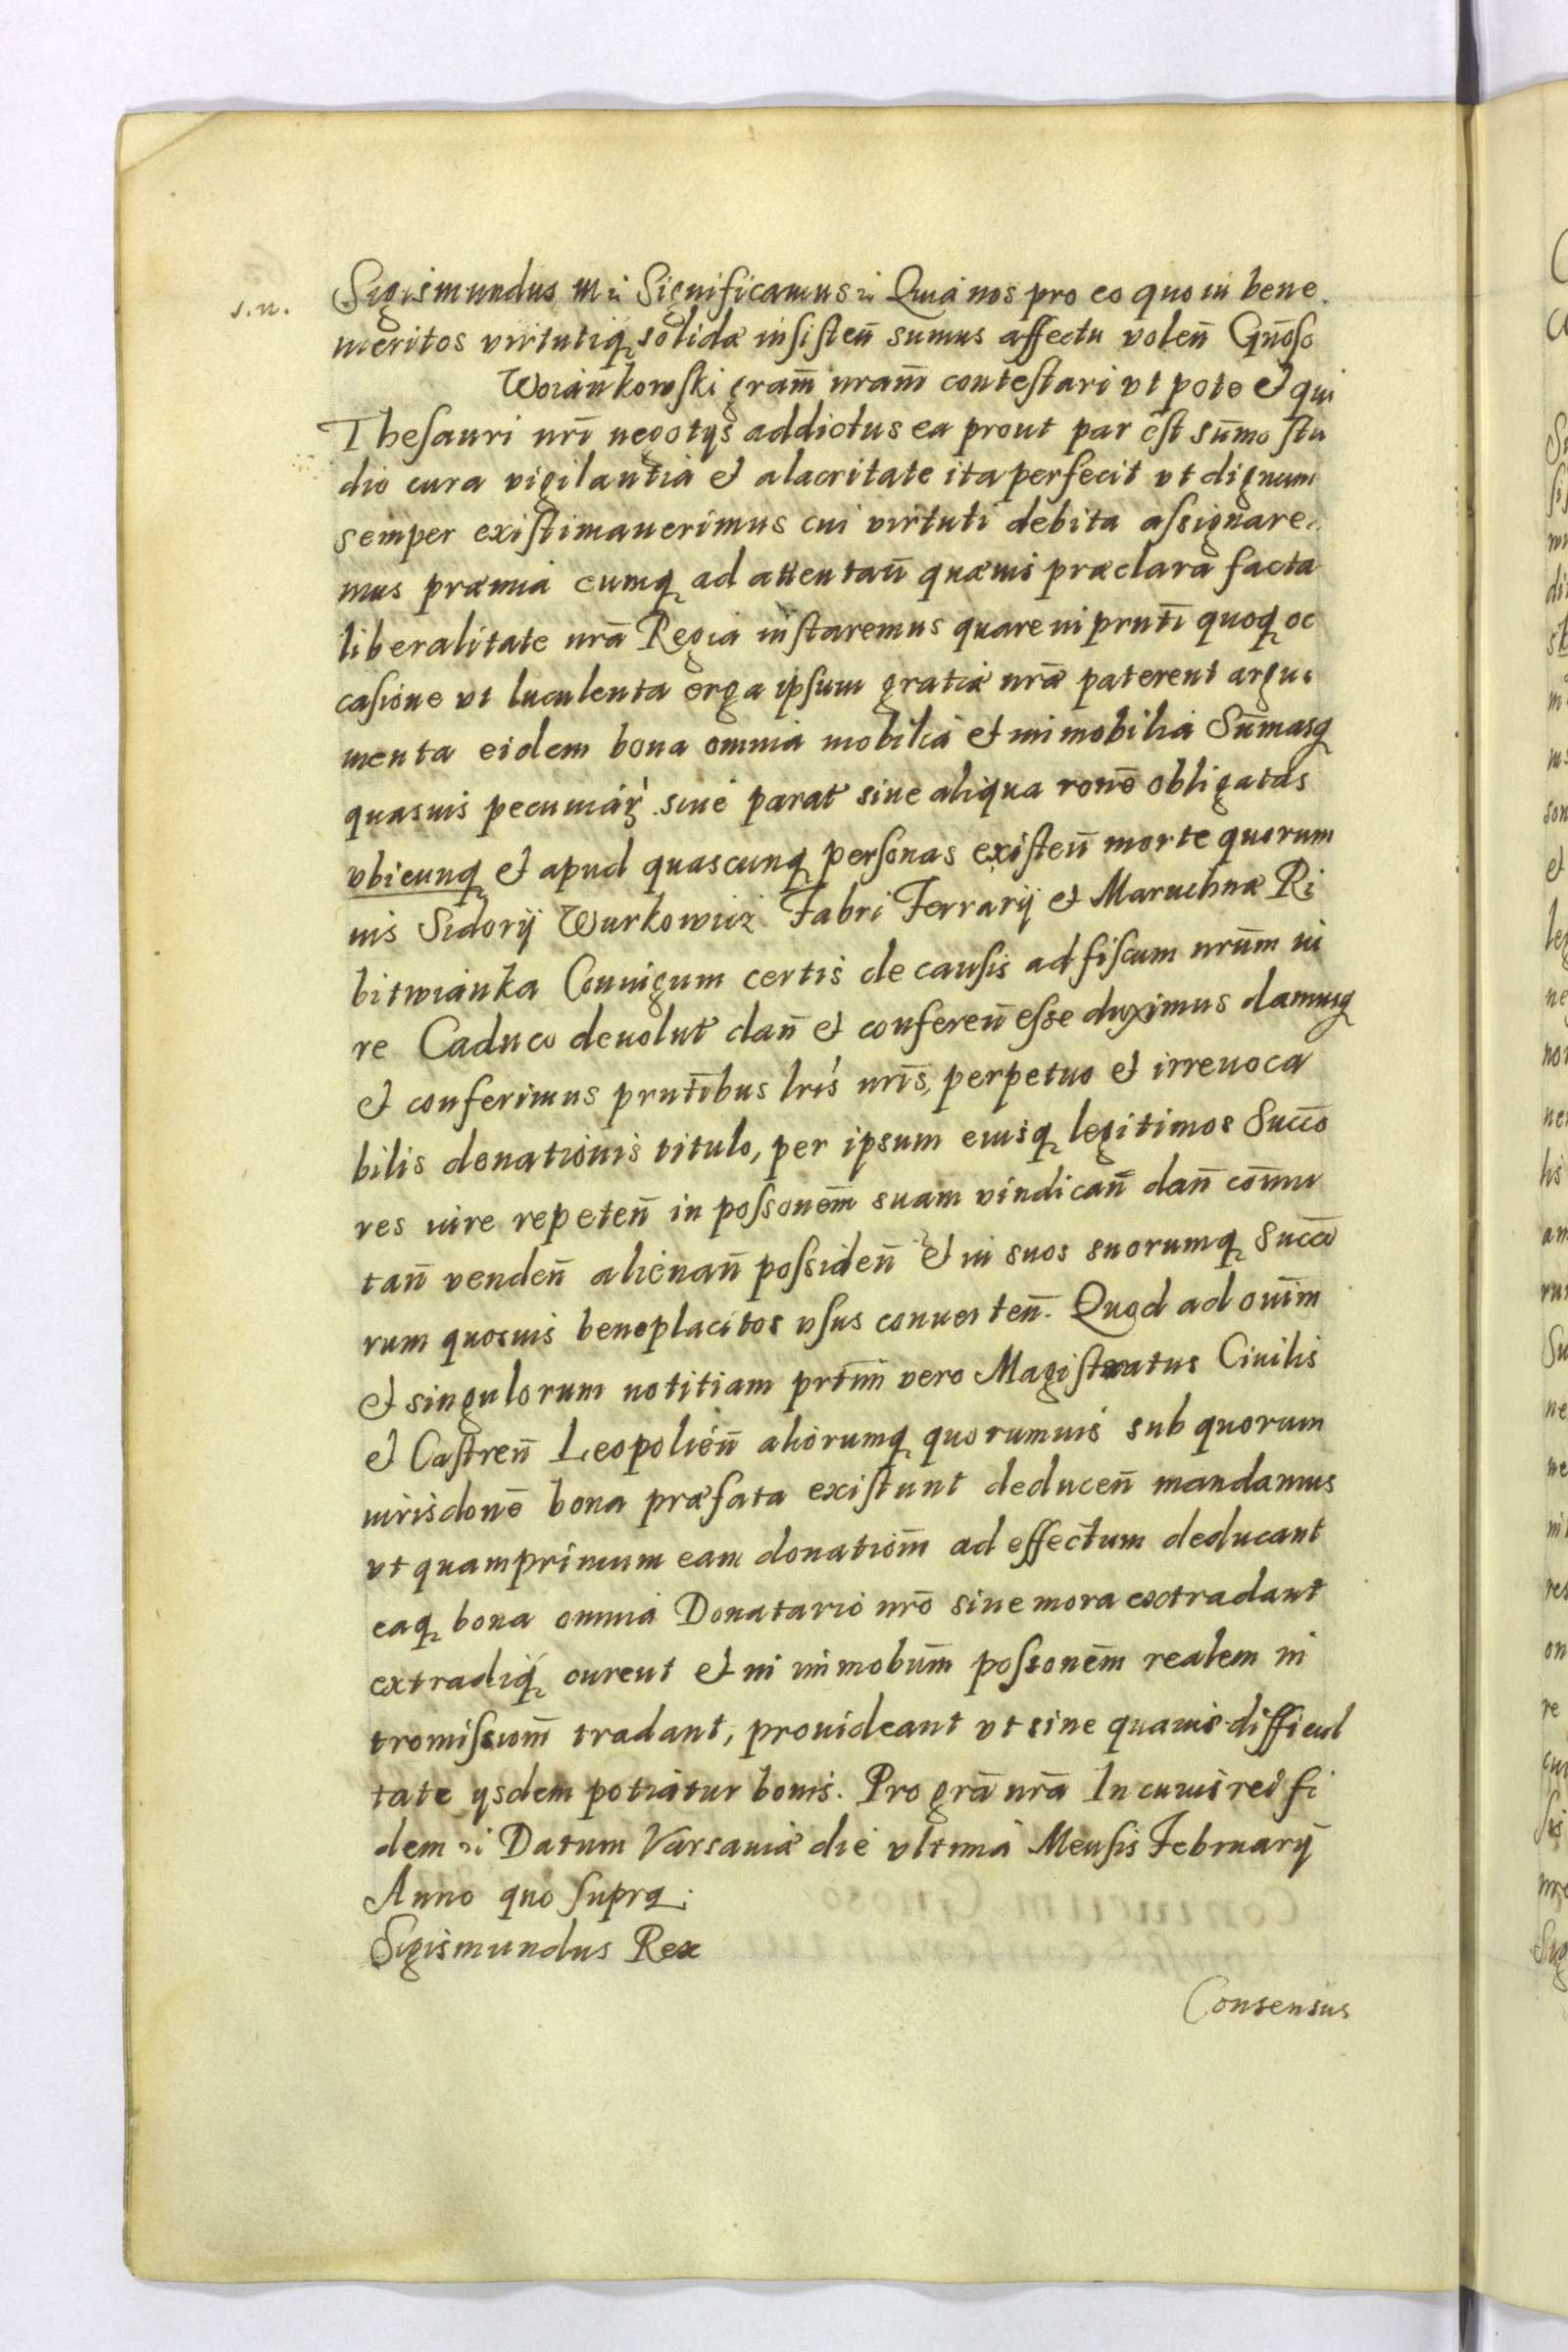 s.n.
Sigismundus III Significamus Quia nos pro eo quo in bene
meritos virtutiq solidæ insisteñ sumus affectu voleñ Gñoso
Woiankowski gram̃ nram̃ contestari vt pote et qui
Thesauri nrĩ negotÿs addictus ea prout par est sum̃o stu
dio cura vigilantia et alacritate ita perfecit vt dignum
semper existimauerimus cui virtuti debita assignare
mus præmia eumq ad attentañ quæuis præclara facta
liberalitate nrã Regia instaremus quare in prnti quoq oc
casione vt luculenta erga ipsum gratiæ nræ paterent argu
menta eidem bona omnia mobilia et immobilia Sum̃asq
quasuis pecuniar siue parat siue aliqua ronẽ obligatas
vbicunq et apud quascunq personas existeñ morte quorum
uis Sidorÿ Wurkowicz Fabri Ferrarÿ et Maruchnæ Ri
bitwianka Coniugum certis de causis ad fiscum nrũm iu
re Caduco deuolut dañ et confereñ esse duximus damusq
et conferimus prntĩbus lrĩs nrĩs, perpetuo et irreuoca
bilis donationis titulo, per ipsum eiusq legitimos Succo
res iure repeteñ in possonẽm suam vindicañ dañ com̃u
tañ vendeñ alienañ possideñ et in suos suorumq Succo
rum quosuis beneplacitos vsus conuerteñ. Quod ad oniũm
et singulorum notitiam prtĩm vero Magistratus Ciuilis
et Castreñ Leopolieñ aliorumq quorumuis sub quorum
iurisdonẽ bona præfata existunt deduceñ mandamus
vt quamprimum eam donatiom̃ ad effectum deducant
eaq bona omnia Donatario nrõ sine mora extradant
extradiq curent et in immobũm possonẽm realem in
tromissiom̃ tradant, prouideant vt sine quauis difficul
tate ÿsdem potiatur bonis. Pro grã nrã In cuius rei fi
dem Datum Varsauiæ die vltima Mensis Februarÿ
Anno quo supra.
Sigismundus Rex
Consensus